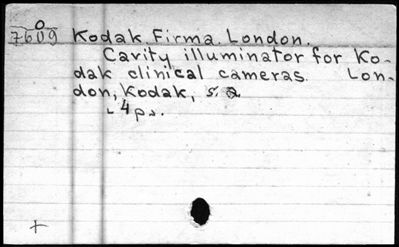 O
7609 Kodak Firma. London.
Cavity illuminator for Ko-
dak clinical cameras. Lon-
don, Kodak, s. a
4 p.
+